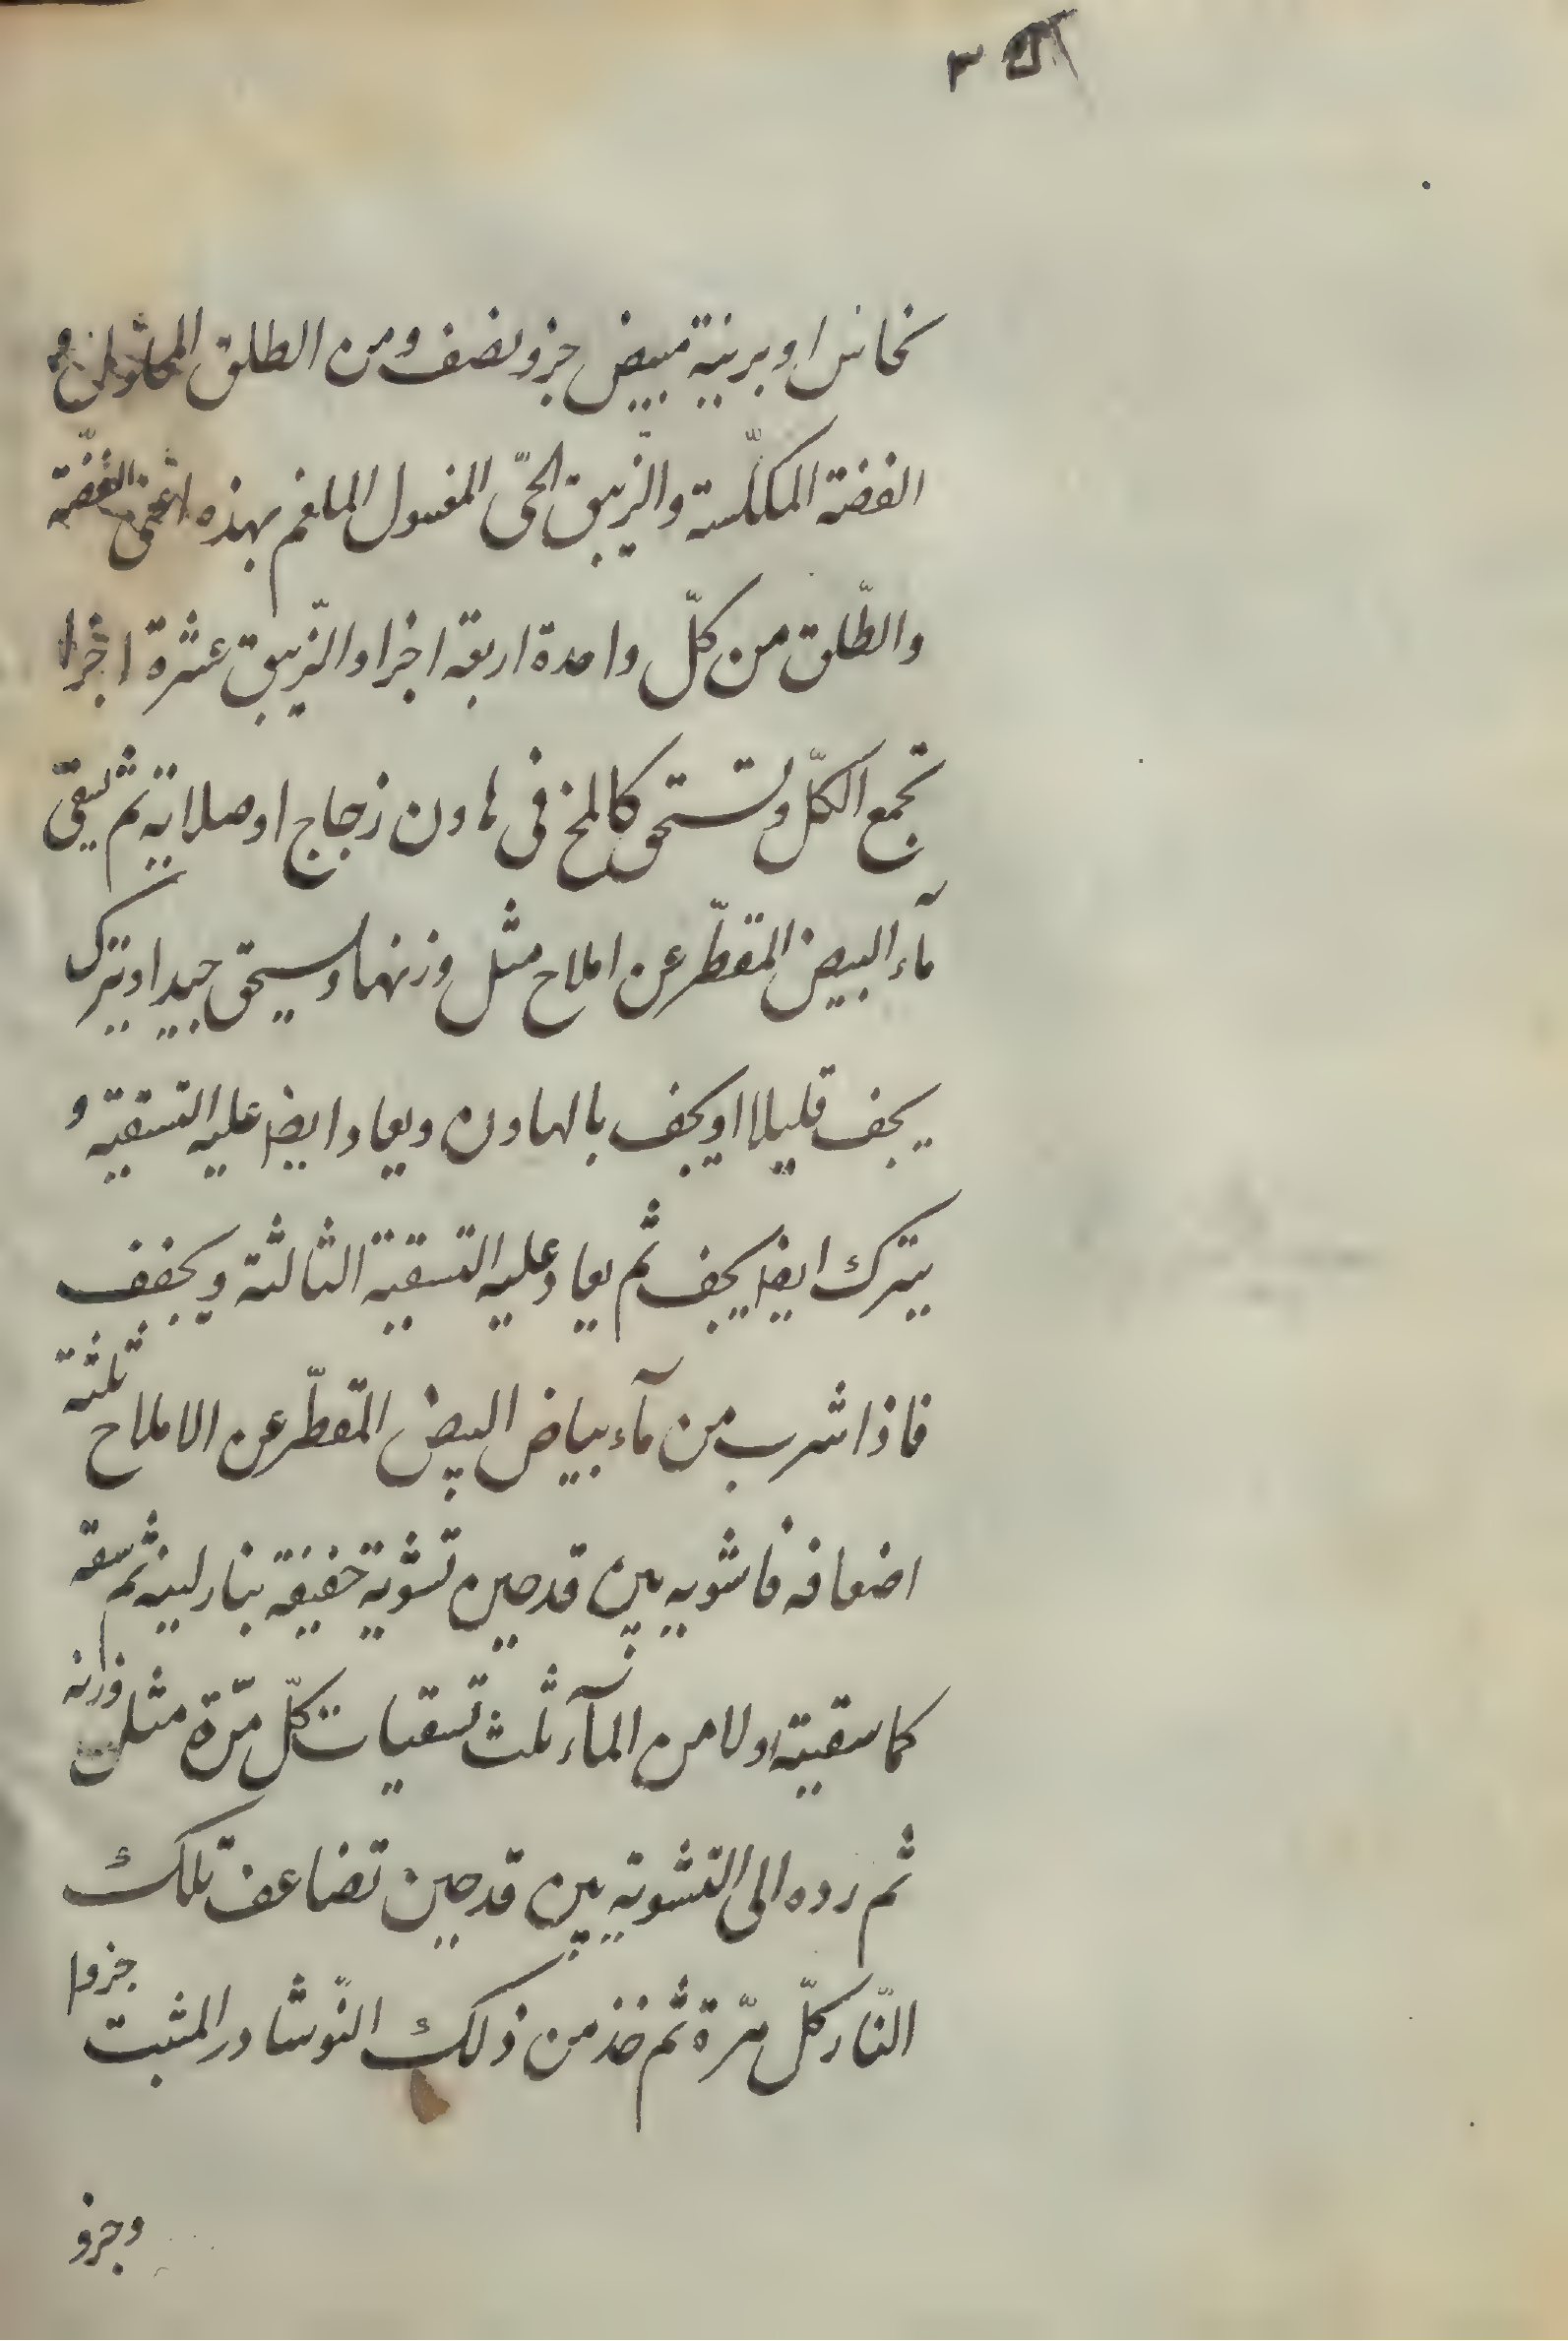 نحاس او برنية مبيض جزو نصف ومن الطلق المحلول ومن
الفضة المكلّسة والزّيبق الحىّ المغسول الملغم بهذه اعنى الفضّة
والطّلق من كلّ واحدة اربعة اجزا والزّيبق عشرة اجزا
تجمع الكلّ وتستحق كالمخ فى هاون زجاج او صلاية ثم يسقى
مآء البيض المقطّر عن املاح مثل وزنها ويسحق جيدا ويترك
يجف قليلا او يجف بالهاون ويعاد ايضا عليه التسقية و
يترك ايضا يجف ثم يعاد عليه التسقية الثالثة ويجفف
فاذا شرب من مآء بياض البيض المقطّر عن الاملاح ثلثة
اضعافه فاشويه بين قدحين تشوية خفيفة بنار لينه ثم سقه
كما سقيته اولا من المآء ثلث تسقيات كلّ مرّة مثل وزنه
ثم رده الى التشوية بين قدحين تضاعف تلك
النّار كلّ مرّة ثم خذ من ذلك النّوشادر المثبت جزوا
وجزو